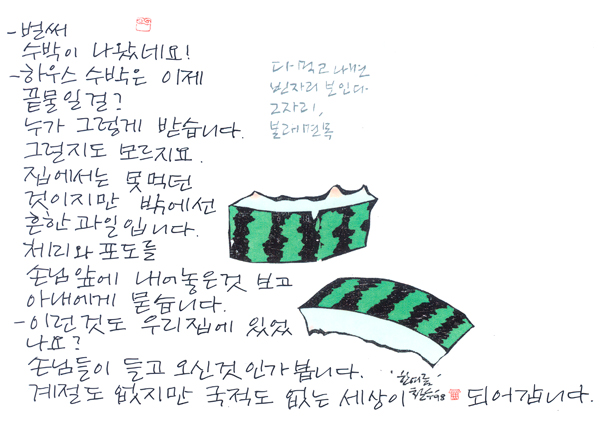 -벌써
수박이 나왔네요!
-하우스 수박은 이제
끝물일걸?
누가 그렇게 받습니다.
그럴지도 모르지요.
집에서는 못먹던
것이지만 밖에선
흔한 과일입니다.
체리와 포도를
손님 앞에 내어놓은것 보고
아내에게 묻습니다.
-이런것도 우리집에 있었
나요?
손님들이 들고 오신것인가 봅니다.
계절도 없지만 국적도 없는 세상이 되어갑니다.
다 먹고 나면
빈자리 보인다
그자리,
본래면목
'한여름'
철수98